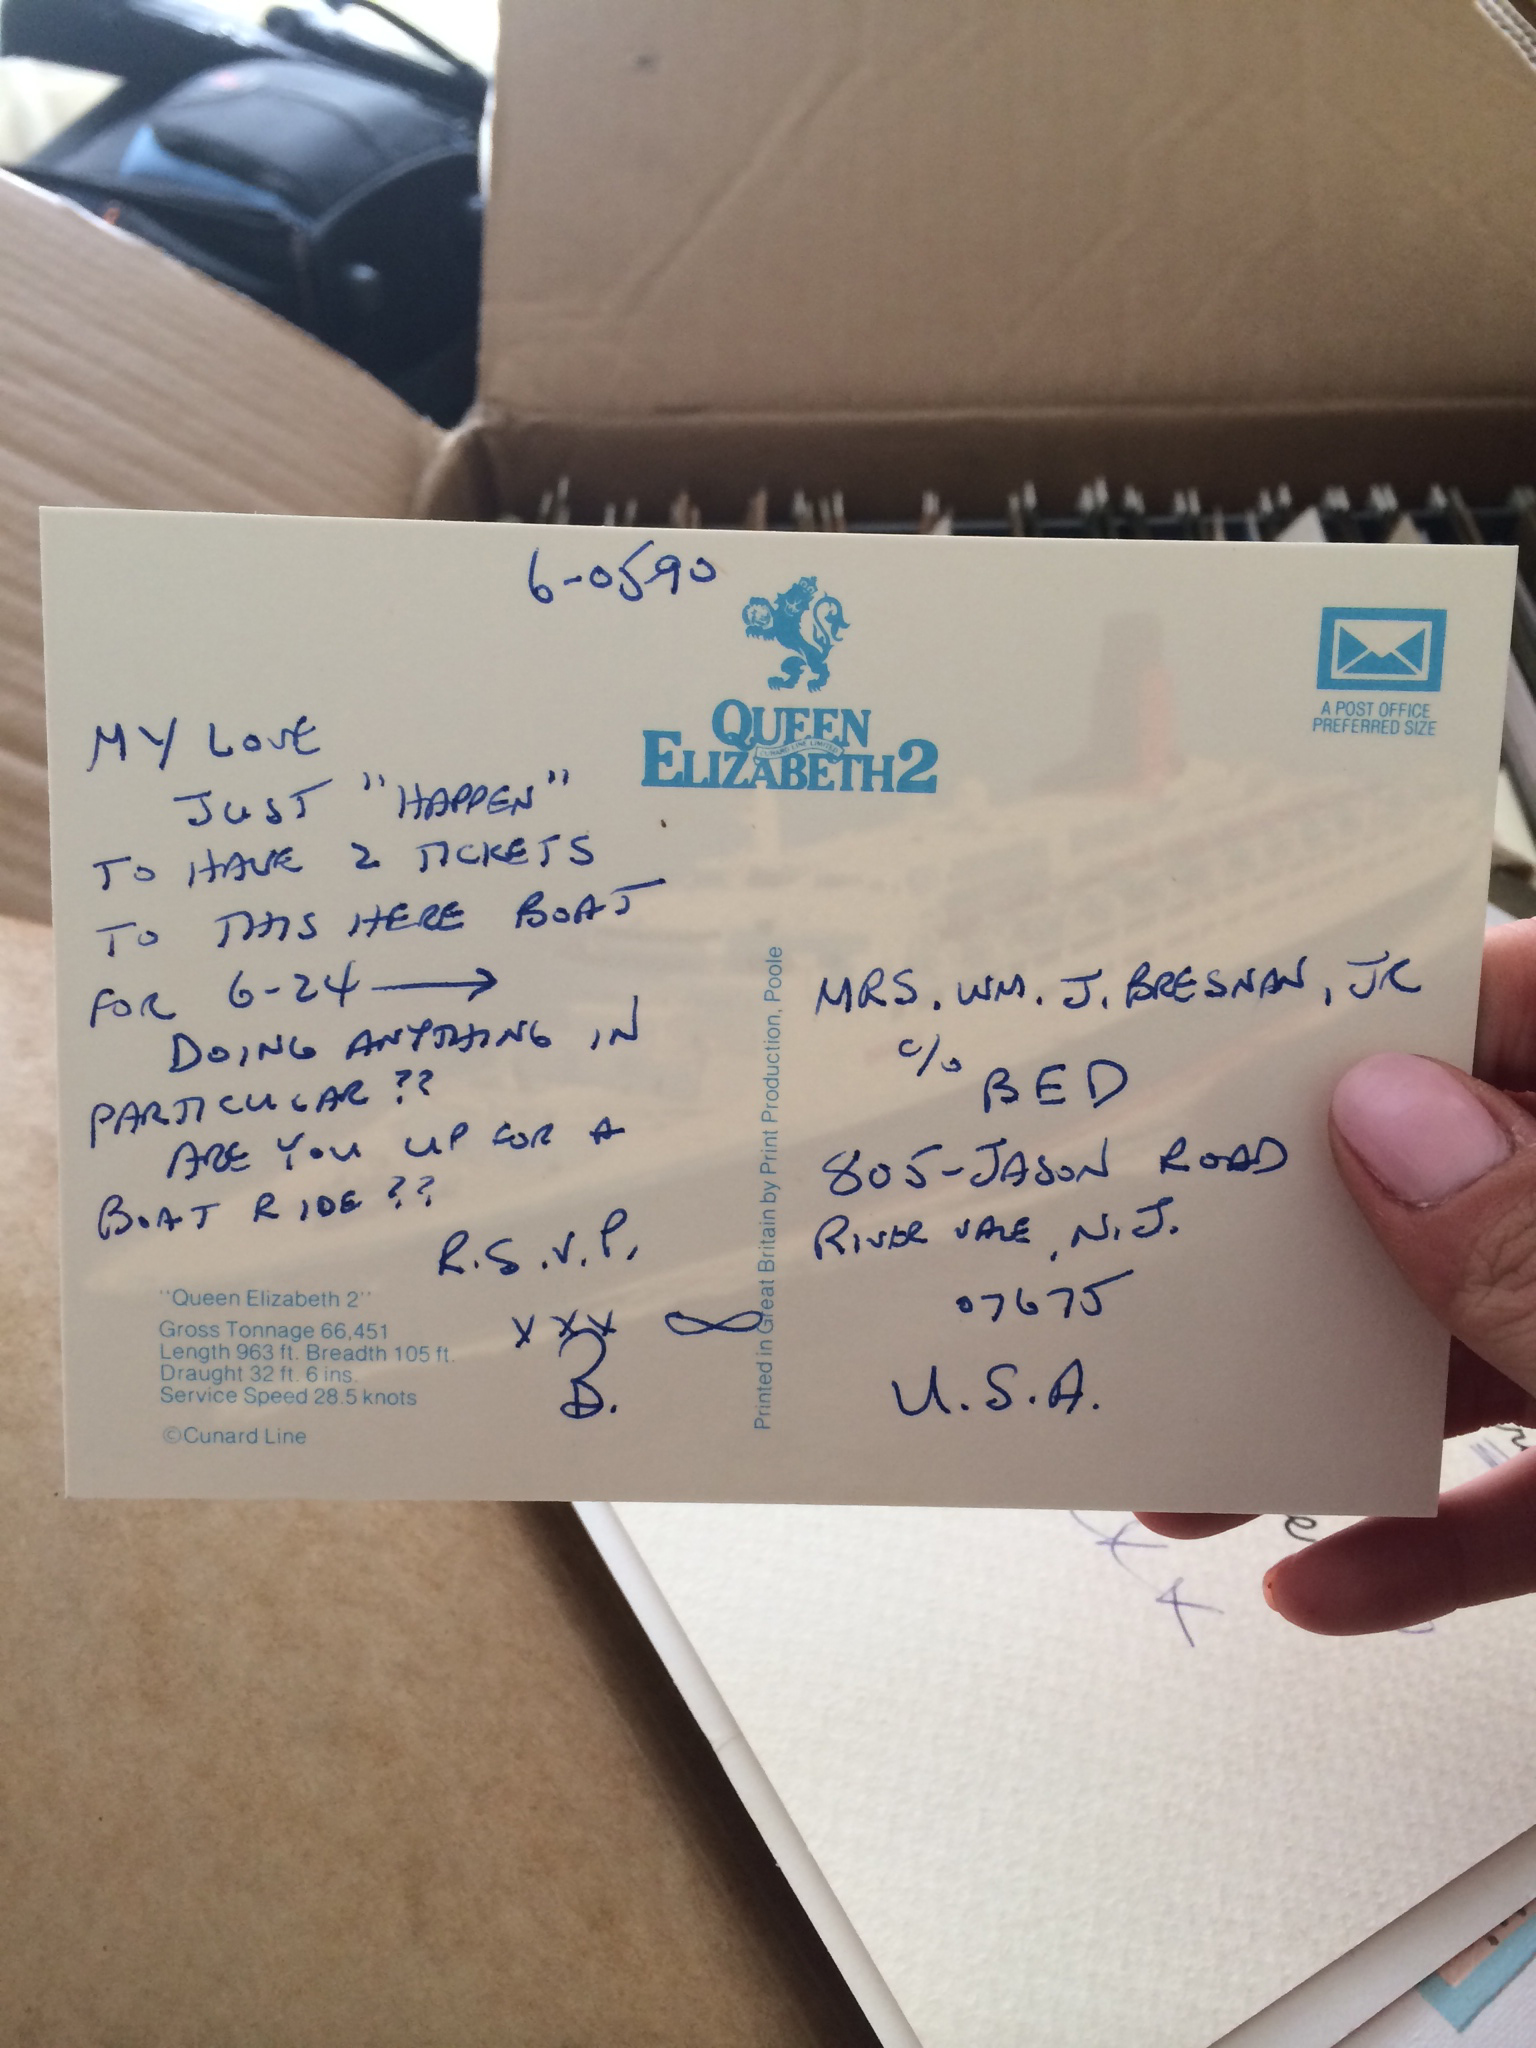 6-0590
QUEEN
CUNARD LINE LIMITED
ELIZABETH 2
A POST OFFICE
PREFERRED SIZE
MY LOVE
JUST "HAPPEN"
TO HAVE 2 TICKETS
TO THIS HERE BOAT
FOR 6-24 →
DOING ANYTHING IN
PARTICULAR ??
ARE YOU UP FOR A
BOAT RIDE ??
R.S.V.P.
XXX ∞
B.
"Queen Elizabeth 2"
Gross Tonnage 66,451
Length 963 ft. Breadth 105 ft.
Draught 32 ft. 6 ins.
Service Speed 28.5 knots
©Cunard Line
Printed in Great Britain by Print Production, Poole
MRS. WM. J. BRESNAN, JR
c/o BED
805-JASON ROAD
RIVER VALE, N.J.
07675
U.S.A.